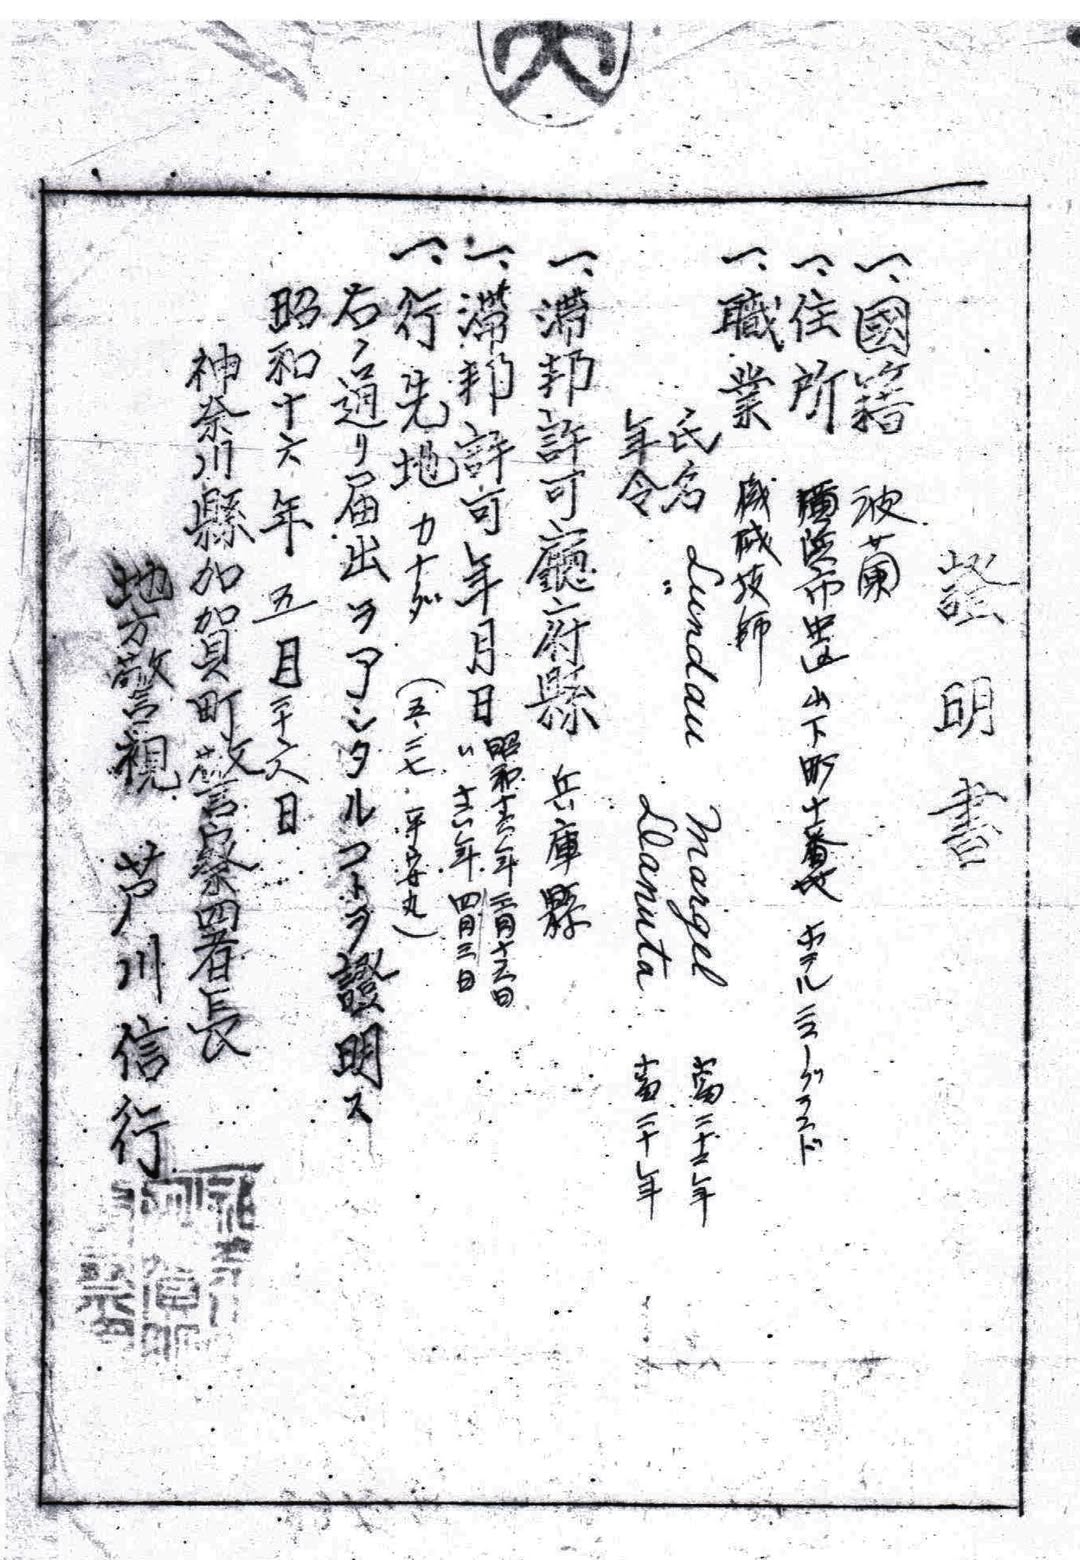 證明書
一、國籍 波蘭
一、住所 横濱市中区山下町十番地 ホテルニューグランド
一、職業 機械技師
氏名 Lundau Margel 當二十三年
年令 〃 Danuta 當二十年
一、滯邦許可廳府縣 兵庫縣
一、滯邦許可年月日 昭和十六年三月十三日
〃 十六年四月三日
一、行先地 カナダ (五・二七、平安丸)
右ノ通リ届出ヲアシタルコトヲ證明ス
昭和十六年五月二十六日
神奈川縣加賀町警察署長
地方警視 芦川信行